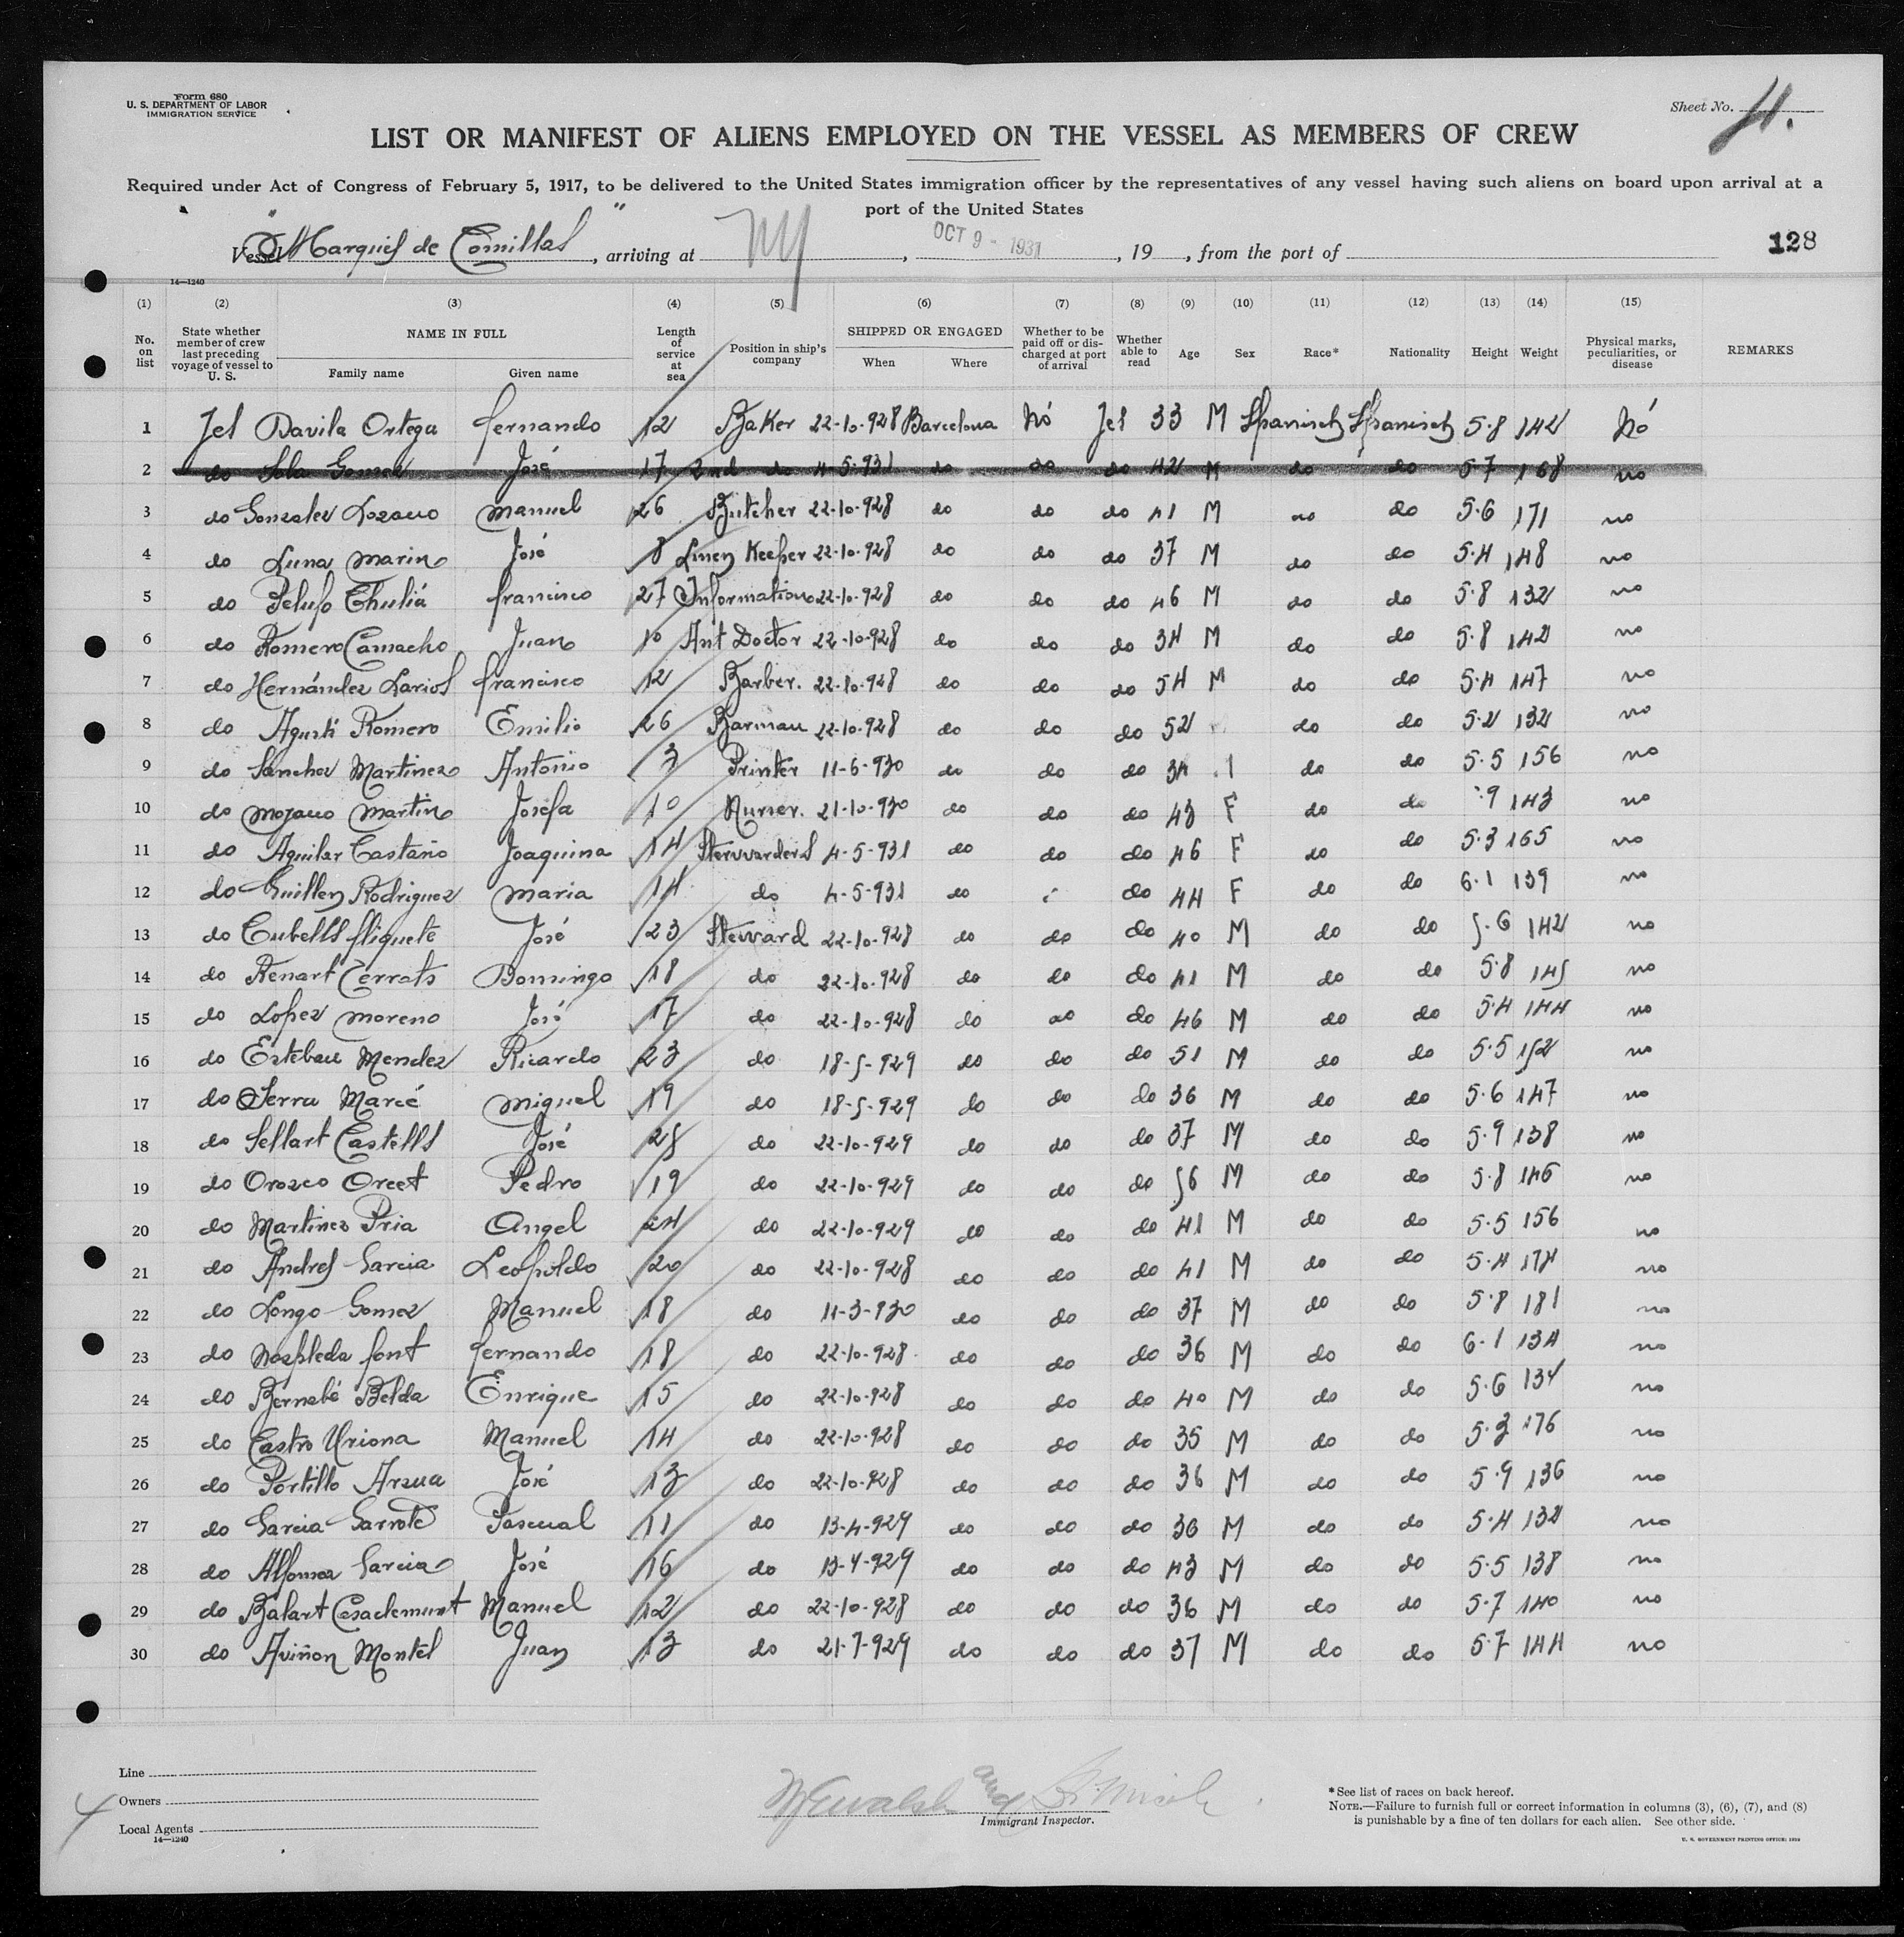 Form 680
U. S. DEPARTMENT OF LABOR
IMMIGRATION SERVICE
Sheet No. 4.
LIST OR MANIFEST OF ALIENS EMPLOYED ON THE VESSEL AS MEMBERS OF CREW
Required under Act of Congress of February 5, 1917, to be delivered to the United States immigration officer by the representatives of any vessel having such aliens on board upon arrival at a
port of the United States
Vessel "Marques de Comillas", arriving at NY, OCT 9 - 1931, 19 , from the port of
128
14—1240
(1) (2) (3) (4) (5) (6) (7) (8) (9) (10) (11) (12) (13) (14) (15)
No. on list State whether member of crew last preceding voyage of vessel to U. S. NAME IN FULL Family name Given name Length of service at sea Position in ship's company SHIPPED OR ENGAGED When Where Whether to be paid off or discharged at port of arrival Whether able to read Age Sex Race* Nationality Height Weight Physical marks, peculiarities, or disease REMARKS
1 Yes Davila Ortega fernando 12 Baker 22-10-928 Barcelona Nó Yes 33 M Spanisch Spanisch 5·8 142 Nó
2 do Sola Gomez José 17 2nd do 4-5-931 do do do 42 M do do 5·7 168 no
3 do Gonzalez Lozano manuel 26 Butcher 22-10-928 do do do 41 M do 5·6 171 no
4 do Luna marin José 8 Linen Keeper 22-10-928 do do do 37 M do do 5·4 148 no
5 do Pelufo Chuliá francisco 27 Information 22-10-928 do do do 46 M do do 5·8 132 no
6 do Romero Camacho Juan 10 Ant Doctor 22-10-928 do do do 34 M do do 5·8 142 no
7 do Hernández Larios francisco 12 Barber. 22-10-928 do do do 54 M do do 5·4 147 no
8 do Agusti Romero Emilio 26 Barman 22-10-928 do do do 52 do do 5·2 132 no
9 do Sanchez Martinez Antonio 3 Printer 11-6-930 do do do 34 do do 5·5 156 no
10 do mozano martin Josefa 10 Nurser. 21-10-930 do do do 43 F do do 9 143 no
11 do Aguilar Castaño Joaquina 14 Stewarders 4-5-931 do do do 46 F do do 5·3 165 no
12 do Guillen Rodriguez maria 14 do 4-5-931 do do 44 F do do 6·1 139 no
13 do Cubells fliquete José 23 Steward 22-10-928 do do do 40 M do do 5·6 142 no
14 do Renart Cerrats Domingo 18 do 22-10-928 do do do 41 M do do 5·8 145 no
15 do Lopez moreno José 17 do 22-10-928 do do do 46 M do do 5·4 144 no
16 do Esteban Mendez Ricardo 23 do 18-5-929 do do do 51 M do do 5·5 152 no
17 do Serra Marcé miguel 19 do 18-5-929 do do do 36 M do do 5·6 147 no
18 do Sellart Castells José 25 do 22-10-929 do do do 37 M do do 5·9 138 no
19 do Orozco Orcet Pedro 19 do 22-10-929 do do do 56 M do do 5·8 146 no
20 do Martinez Pria Angel 24 do 22-10-929 do do do 41 M do do 5·5 156 no
21 do Andres Garcia Leopoldo 20 do 22-10-928 do do do 41 M do do 5·4 174 no
22 do Longo Gomez Manuel 18 do 11-3-930 do do do 37 M do do 5·8 181 no
23 do Nospleda font fernando 18 do 22-10-928 do do do 36 M do do 6·1 134 no
24 do Bernabé Belda Enrique 15 do 22-10-928 do do do 40 M do do 5·6 134 no
25 do Castro Uriona Manuel 14 do 22-10-928 do do do 35 M do do 5·3 176 no
26 do Portillo Arzua José 13 do 22-10-928 do do do 36 M do do 5·9 136 no
27 do Garcia Garrote Pascual 11 do 13-4-929 do do do 36 M do do 5·4 132 no
28 do Alfonso Garcia José 16 do 13-4-929 do do do 43 M do do 5·5 138 no
29 do Balart Casaclemunt Manuel 12 do 22-10-928 do do do 36 M do do 5·7 140 no
30 do Aviñon Montel Juan 13 do 21-7-929 do do do 37 M do do 5·7 144 no
Line
Owners
Local Agents
14—1240
4
Immigrant Inspector.
*See list of races on back hereof.
NOTE.—Failure to furnish full or correct information in columns (3), (6), (7), and (8)
is punishable by a fine of ten dollars for each alien. See other side.